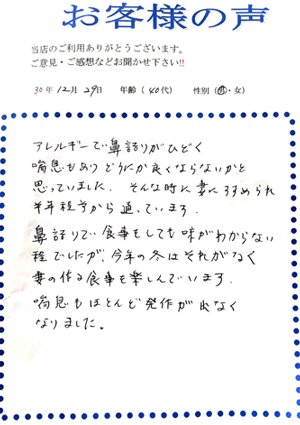 お客様の声
当店のご利用ありがとうございます。
ご意見・ご感想などお聞かせ下さい!!
30年 12月 29日 年齢 (40代) 性別 (男・女)
アレルギーで鼻詰りがひどく
喘息もありどうにか良くならないかと
思っていました。そんな時に妻にすすめられ
半年程前から通っています。
鼻詰りで食事をしても味がわからない
程でしたが、今年の冬はそれがなく
妻の作る食事を楽しんでいます。
喘息もほとんど発作が出なく
なりました。